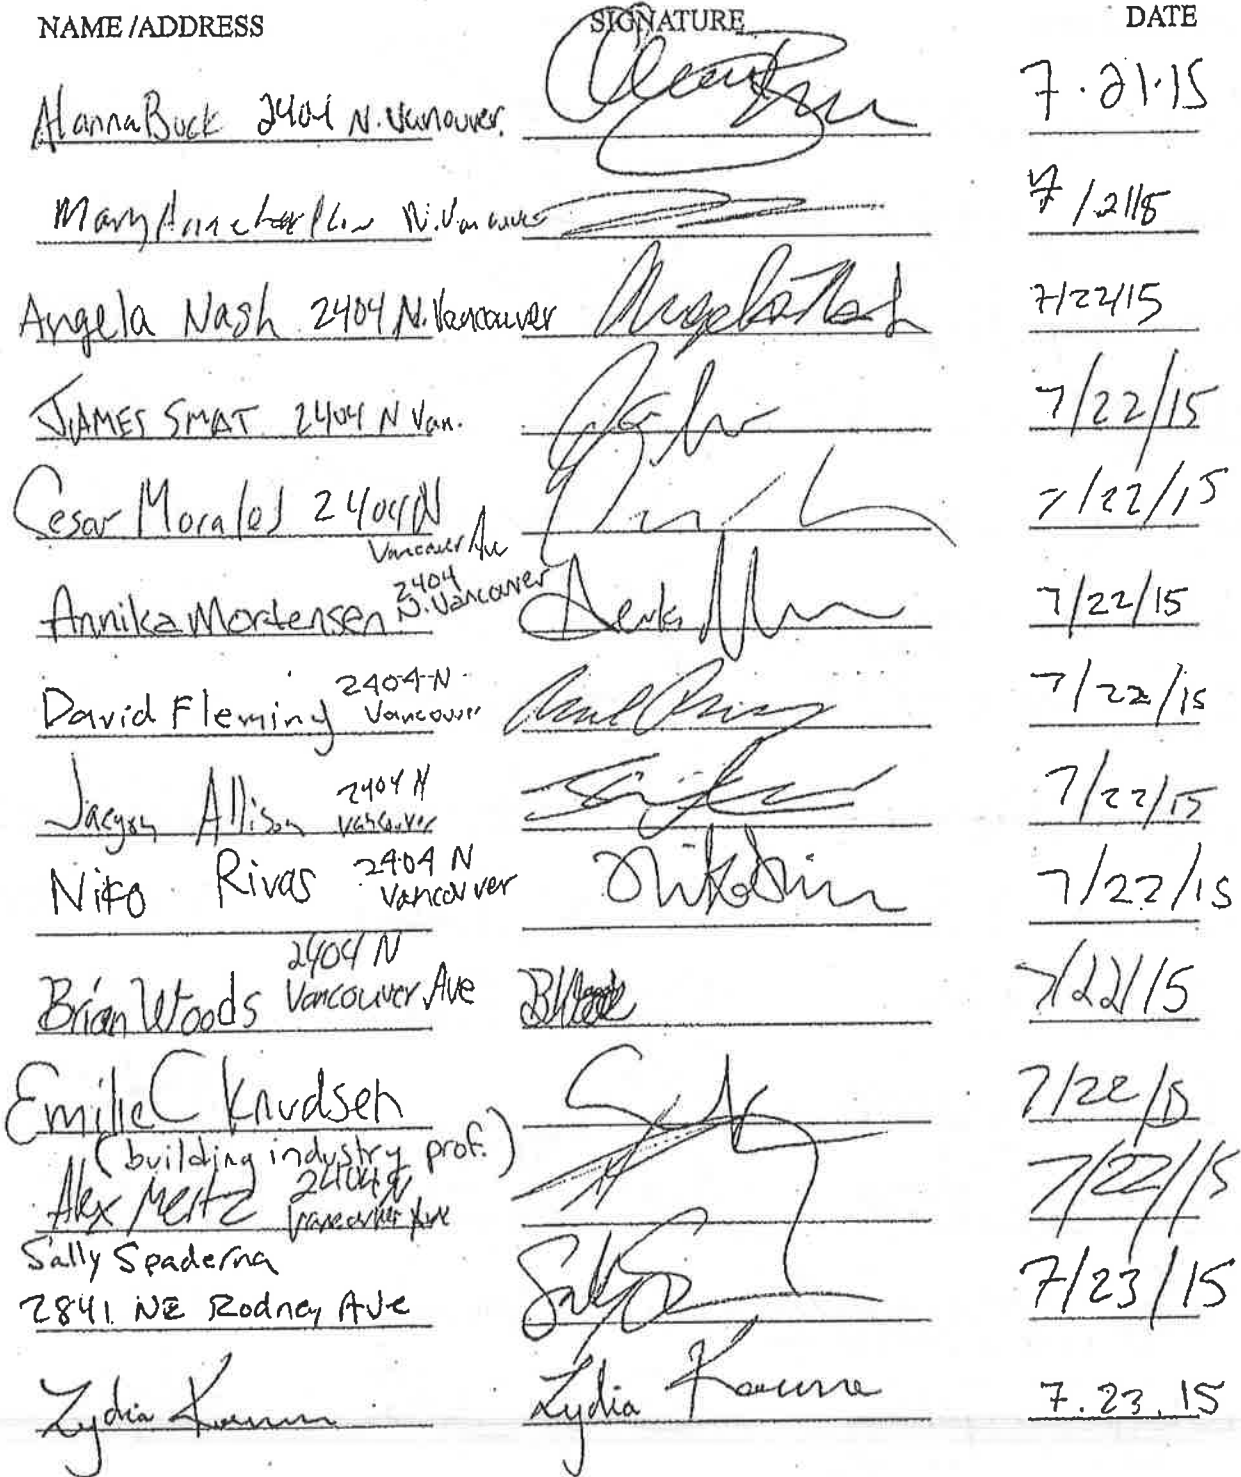 NAME /ADDRESS SIGNATURE DATE
Alanna Buck 2404 N. Vancouver. 7.21.15
Mary Anne N. Vancouver 7/21/15
Angela Nash 2404 N. Vancouver Angela Nash 7/22/15
JAMES SMAT 2404 N Van. 7/22/15
Cesar Morales 2404 N 7/22/15
Vancouver Ave
2404
Annika Mortensen N. Vancouver 7/22/15
2404 N
David Fleming Vancouver 7/22/15
2404 N
Allison Vancouver 7/22/15
Niko Rivas 2404 N 7/22/15
Vancouver
2404 N
Brian Woods Vancouver Ave 7/22/15
Emilie C Knudsen 7/22/15
(building industry prof.)
Alex Mertz 2404 N 7/22/15
Vancouver Ave
Sally Spaderna
2841 NE Rodney Ave 7/23/15
Lydia Lydia 7.23.15